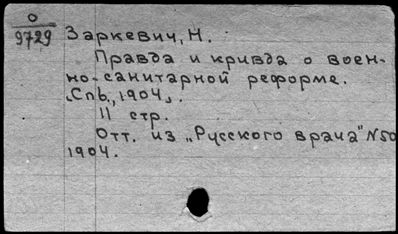 О
9729
Заркевич, Н.
Правда и кривда о воен-
но-санитарной реформе.
„Спб., 1904„.
11 стр.
Отт. из „Русского врача" N50
1904.